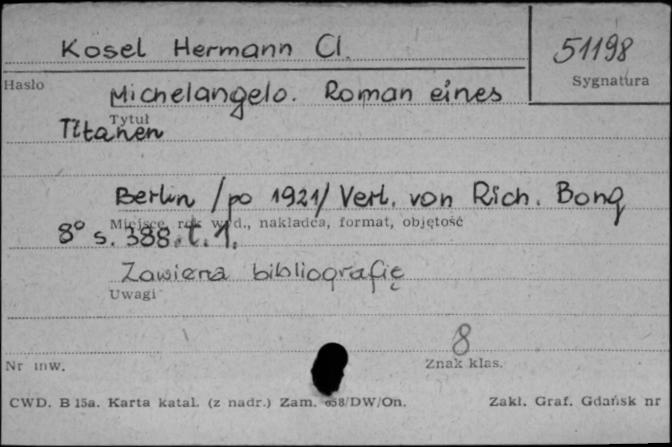 Kosel Hermann Cl.
51198
Hasło
Sygnatura
Michelangelo. Roman eines
Tytuł
Titanen
Berlin /po 1921/ Verl. von Rich. Bong
Miejsce, rok wyd., nakładca, format, objętość
8° s. 388. t. 1.
Zawiera bibliografię
Uwagi
8
Nr inw.
Znak klas.
CWD. B 15a. Karta katal. (z nadr.) Zam. 658/DW/On.
Zakł. Graf. Gdańsk nr